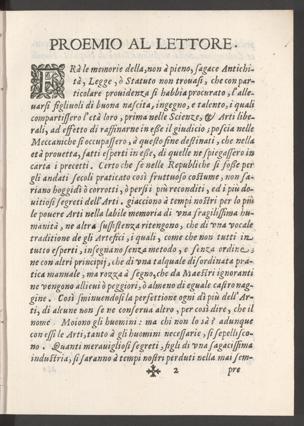 PROEMIO AL LETTORE.
FRà le memorie della, non à pieno, sagace Antichi-
tà, Legge, ò Statuto non trouasi, che con par-
ticolare prouidenza si habbia procurato, l'alle-
uarsi figliuoli di buona nascita, ingegno, e talento, i quali
compartissero l'età loro, prima nelle Scienze, & Arti libe-
rali, ad effetto di raffinarne in esse il giudicio; poscia nelle
Meccaniche si occupassero, à questo fine destinati, che nella
età prouetta, fatti esperti in esse, di quelle ne spiegassero in
carta i precetti. Certo che se nelle Republiche si fosse per
gli andati secoli praticato così fruttuoso costume, non sa-
riano hoggidì ò corrotti, ò persi i più reconditi, ed i più do-
uitiosi segreti dell'Arti. giacciono à tempi nostri per lo più
le pouere Arti nella labile memoria di vna fragilissima hu-
manità, ne altra sussistenza ritengono, che di vna vocale
traditione de gli Artefici; i quali, come che non tutti in
tutto esperti, insegnano senza metodo, e senza ordine,
ne con altri principij, che di vna tal quale disordinata pra-
tica manuale, ma rozza à segno, che da Maestri ignoranti
ne vengono allieui ò peggiori, ò almeno di eguale castronag-
gine. Così sminuendosi la perfettione ogni dì più dell'Ar-
ti, di alcune non se ne conserua altro, per così dire, che il
nome. Moiono gli huomini: ma chi non lo sà? adunque
con essi le Arti, tanto à gli huomini necessarie, si sepellisco-
no. Quanti merauigliosi segreti, figli di vna sagacissima
industria, si saranno à tempi nostri perduti nella mai sem-
✠ 2 pre